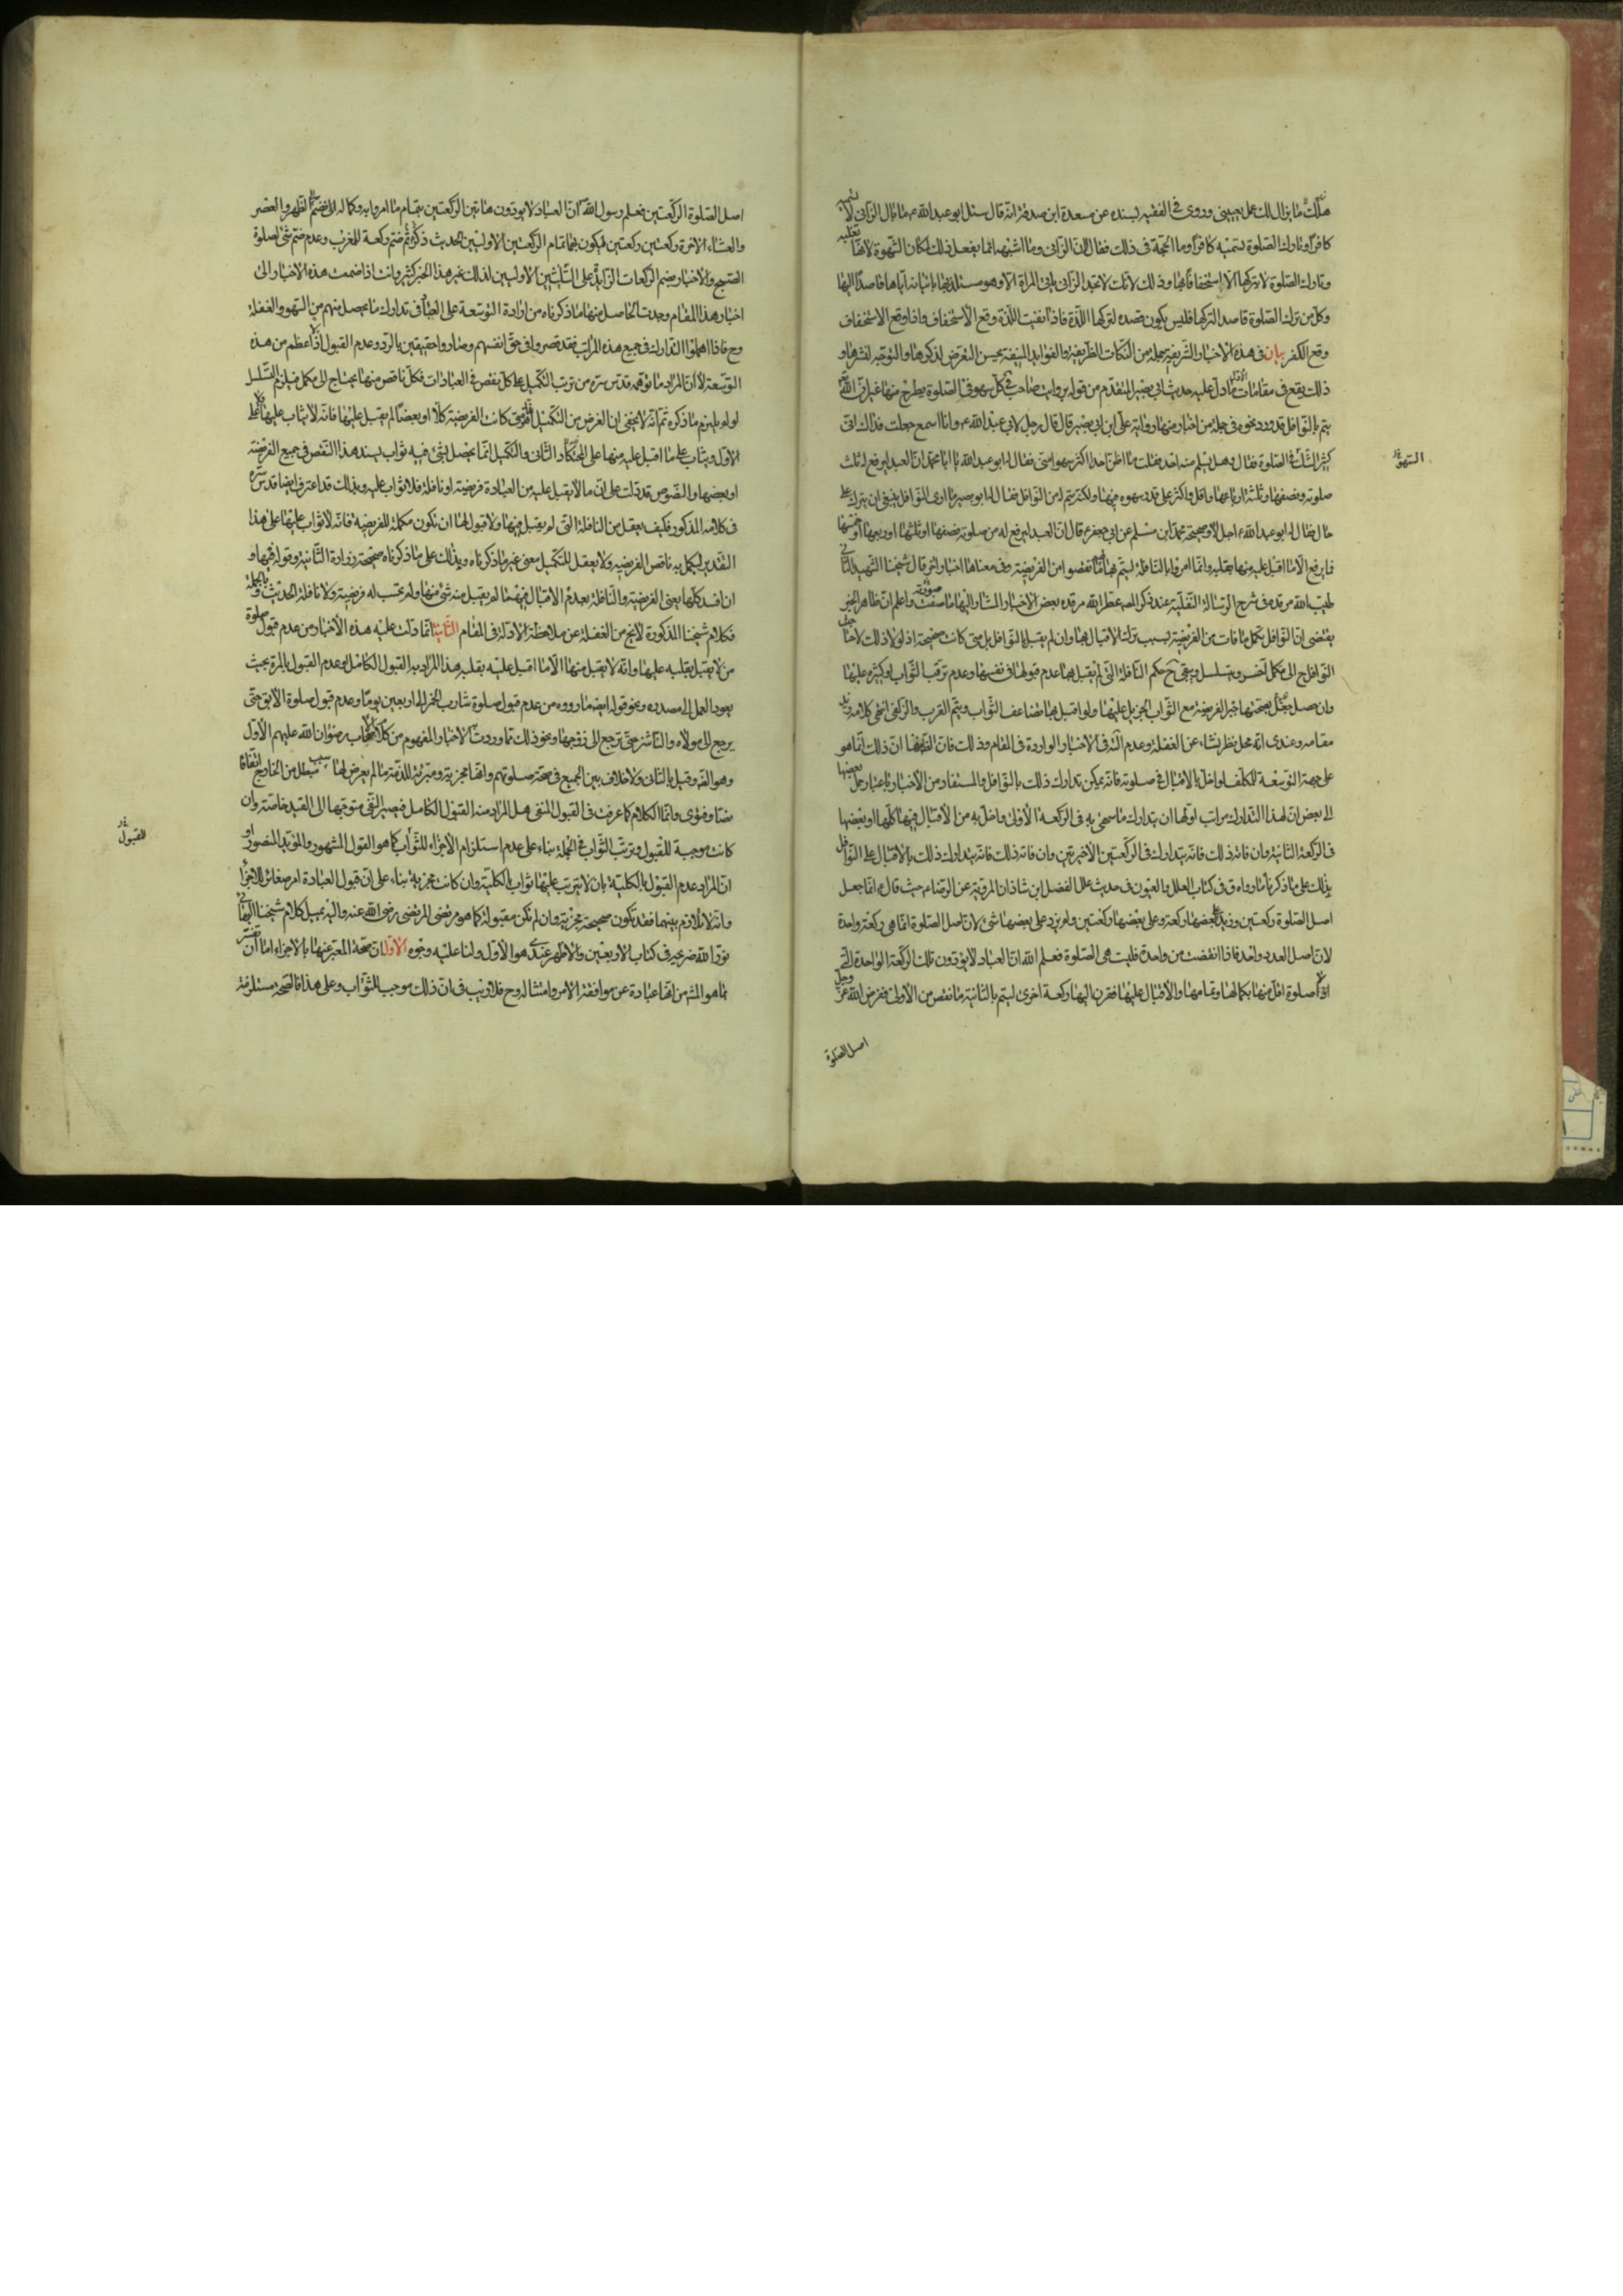 هنالك ما بال لك على بديني وروى في الفقيه بسنده عن مسعدة ابن صدقة انه قال سئل ابو عبد الله ع ما بال الزاني لا تسميه
كافرا وتارك الصلوة تسميه كافرا وما الحجة في ذلك فقال لان الزاني وما اشبهه انما يفعل ذلك لمكان الشهوة لانها تغلبه
وتارك الصلوة لا يتركها الا استخفافا بها وذلك لانك لا تجد الزاني ياتي المراة الا وهو مستلذ بها باتيانه اياها قاصدا اليها
وكل من ترك الصلوة قاصدا لتركها فليس يكون قصده لتركها اللذة فاذا انفيت اللذة وقع الاستخفاف واذا وقع الاستخفاف
وقع الكفر بيان في هذه الاخبار الشريفة جملة من النكات الظريفة والفوايد المنيفة يحسن التعرض لذكرها والتوجه لنشرها و
ذلك يقع في مقامات الاول ما دل عليه حديث ابي بصير المتقدم من قوله كل سهو في الصلوة يطرح منها غير ان الله
يتم بالنوافل قد ورد نحوه في جملة من اخبار منها رواية علي ابن ابي بصير قال قال رجل لابي عبد الله ع وانا اسمع جعلت فداك اني
كثير السهو في الصلوة فقال وهل يسلم منه احد فقلت ما اظن احدا اكثر سهوا مني فقال له ابو عبد الله يا ابا محمد ان العبد يرفع له ثلث
صلوته ونصفها وثلثة ارباعها واقل واكثر على قدر سهوه فيها ولكنه يتم له من النوافل فقال له ابو بصير ما ارى النوافل ينبغي ان تترك على
حال فقال له ابو عبد الله ع اجل لا وصحيحة محمد ابن مسلم عن ابي جعفر ع قال ان العبد ليرفع له من صلوته نصفها او ثلثها او ربعها او خمسها
فما يرفع الا ما اقبل عليه منها بقلبه وانما امروا بالنافلة ليتم لهم بها ما نقصوا من الفريضة وفي معناها اخبار اخر قال شيخنا الشهيد الثاني
طيب الله مرقده في شرح الرسالة النفلية عند ذكر المصنف عطر الله مرقده بعض الاخبار المشار اليها ما صورته واعلم ان ظاهر الخبر
يقتضي ان النوافل تكمل ما فات من الفريضة بسبب ترك الاقبال بها وان لم يقبل بالنوافل بل متى كانت صحيحة اذ لولا ذلك لاحتاجت
النوافل ح الى مكمل اخر ويتسلسل ويبقى ح حكم النافلة التي لم يقبل بها عدم قبولها في نفسها وعدم ترتب الثواب او كثيره عليها
وان حصل بصحتها جبر الفريضة مع الثواب الجزيل عليها ولو اقبل بها تضاعف الثواب ويتم القرب والزلفى انتهى كلامه زيد
مقامه وعندي انه محل نظر ينشاء عن الغفلة وعدم في الاخبار الواردة في المقام وذلك فان الظاهر منها ان ذلك انما هو
على جهة التوسعة للمكلف لو اخل بالاقبال في صلوته فانه يمكن تدارك ذلك بالنوافل والمستفاد من الاخبار باعتبار حمل بعضها
الى بعض ان لهذا التدارك مراتب اولها ان يتدارك ما سهى به في الركعة الاولى واخل به من الاقبال فيها كلها او بعضها
في الركعة الثانية وان فاته ذلك فانه يتداركه في الركعتين الاخيرتين وان فاته ذلك فانه يتدارك ذلك بالاقبال على النوافل
يدلك على ما ذكرنا ما رواه ق في كتاب العلل والعيون في حديث علل الفضل ابن شاذان المروية عن الرضا ع حيث قال ع انما جعل
اصل الصلوة ركعتين وزيد على بعضها ركعة وعلى بعضها ركعتين ولم يزد على بعضها شئ لان اصل الصلوة انما هي ركعة واحدة
لان اصل العدد واحد فاذا انقصت من واحدة فليست هي الصلوة فعلم الله ان العباد لا يؤدون تلك الركعة الواحدة التي
لا صلوة اقل منها بكمالها وتمامها والاقبال عليها فقرن اليها ركعة اخرى ليتم بالثانية ما نقص من الاولى ففرض الله عز وجل
السهو
اصل الصلوة
اصل الصلوة الركعتين فعلم رسول الله ان العباد لا يودون هاتين الركعتين بتمام ما امروا به وكماله فضم الى الظهر والعصر
والعشاء الاخرة ركعتين ركعتين ليكون بهما تمام الركعتين الاوليين الحديث ثم ذكر ضم ركعة للمغرب وعدم ضم شئ لصلوة
الصبح والاخبار بضم الركعات الزايدة على الاوليين لذلك غير هذا الخبر كثير وانت اذا ضممت هذه الاخبار الى
اخبار هذا المقام وجدت الحاصل منها ما ذكرناه من ارادة التوسعة على العباد في تدارك ما يحصل منهم من السهو والغفلة
وح فاذا اهملوا التدارك في جميع هذه المراتب فقد قصروا في حق انفسهم وصاروا حقيقين بالرد وعدم القبول اذ لا اعظم من هذه
التوسعة لا ان المراد ما توهمه قدس سره من ترتب التكميل على كل نقص في العبادات فكل ناقص منها يحتاج الى مكمل فيلزم التسلسل
لولم يلتزم ما ذكره ثم انه لا يخفى ان الغرض من التكميل كانت الفريضة كلا او بعضا لم يقبل عليها فانه لا يثاب عليها على
الاول ويثاب على ما اقبل عليه منها على الثاني والتكميل انما يحصل بشئ فيه ثواب ليسد هذا النقص في جميع الفريضة
او بعضها والنصوص قد دلت على ان ما لا يقبل عليه من العبادة فريضة او نافلة فلا ثواب عليه وبذلك قد اعترف ايضا قدس سره
في كلامه المذكور فكيف يعقل من النافلة التي لم يقبل فيها ولا قبول لها ان تكون مكملة للفريضة فانه لا ثواب عليها على هذا
التقدير ليكمل به ناقص الفريضة ولا يعقل للتكميل معنى غير ما ذكرناه ويدلك على ما ذكرناه صحيحة زرارة الثانية وقوله فيها و
ان افسد كلها يعني الفريضة والنافلة بعدم الاقبال فيهما لم يقبل منه شئ منها ولم يحتسب له فريضة ولا نافلة الحديث وبالجملة
فكلام شيخنا المذكور لا يخ من الغفلة عن ملاحظة الادلة في المقام الثاني انما دلت عليه هذه الاخبار من عدم قبول صلوة
من لا يقبل بقلبه عليها وانه لا يقبل منها الا ما اقبل عليه بقلبه هذا المراد به القبول الكامل او عدم القبول بالمرة بحيث
يعود العمل الى مصدره ونحو قوله ايضا ما رووه من عدم قبول صلوة شارب الخمر الى اربعين يوما وعدم قبول صلوة الابق حتى
يرجع الى مولاه والناشز حتى ترجع الى زوجها ونحو ذلك مما وردت به الاخبار المفهوم من كلام الاصحاب رضوان الله عليهم الاول
وهو الظ وقيل بالثاني ولا خلاف بين الجميع في صحة صلوتهم وانها مجزية ومبرئة للذمة ما لم يعرض لها سبب مبطل من الخارج اتفاقا
نصا وفتوى وانما الكلام كما عرفت في القبول المنفي هل المراد منه القبول الكامل فيصير النفي متوجها الى القيد خاصة وان
كانت موجبة للقبول وترتب الثواب في الجملة بناء على عدم استلزام الاجزاء للثواب كما هو القول المشهور والمؤيد المنصور او
ان المراد عدم القبول بالكلية بان لا يترتب عليها ثواب بالكلية وان كانت مجزية بناء على ان قبول العبادة امر مغائر للاجزاء
وانه لا تلازم بينهما فقد تكون صحيحة مجزية وان لم تكن مقبولة كما هو مرتضى المرتضى رضي الله عنه واليه يميل كلام شيخنا البهائي
نور الله ضريحه في كتاب الاربعين والاظهر عندي هو الاول ولنا عليه وجوه الاول ان صحة المعبر عنها بالاجزاء اما ان تفسر
بما هو المش من انها عبادة عن موافقة الامر وامتثاله وح فلا ريب في ان ذلك موجب للثواب وعلى هذا فالصحة مستلزمة
للقبول